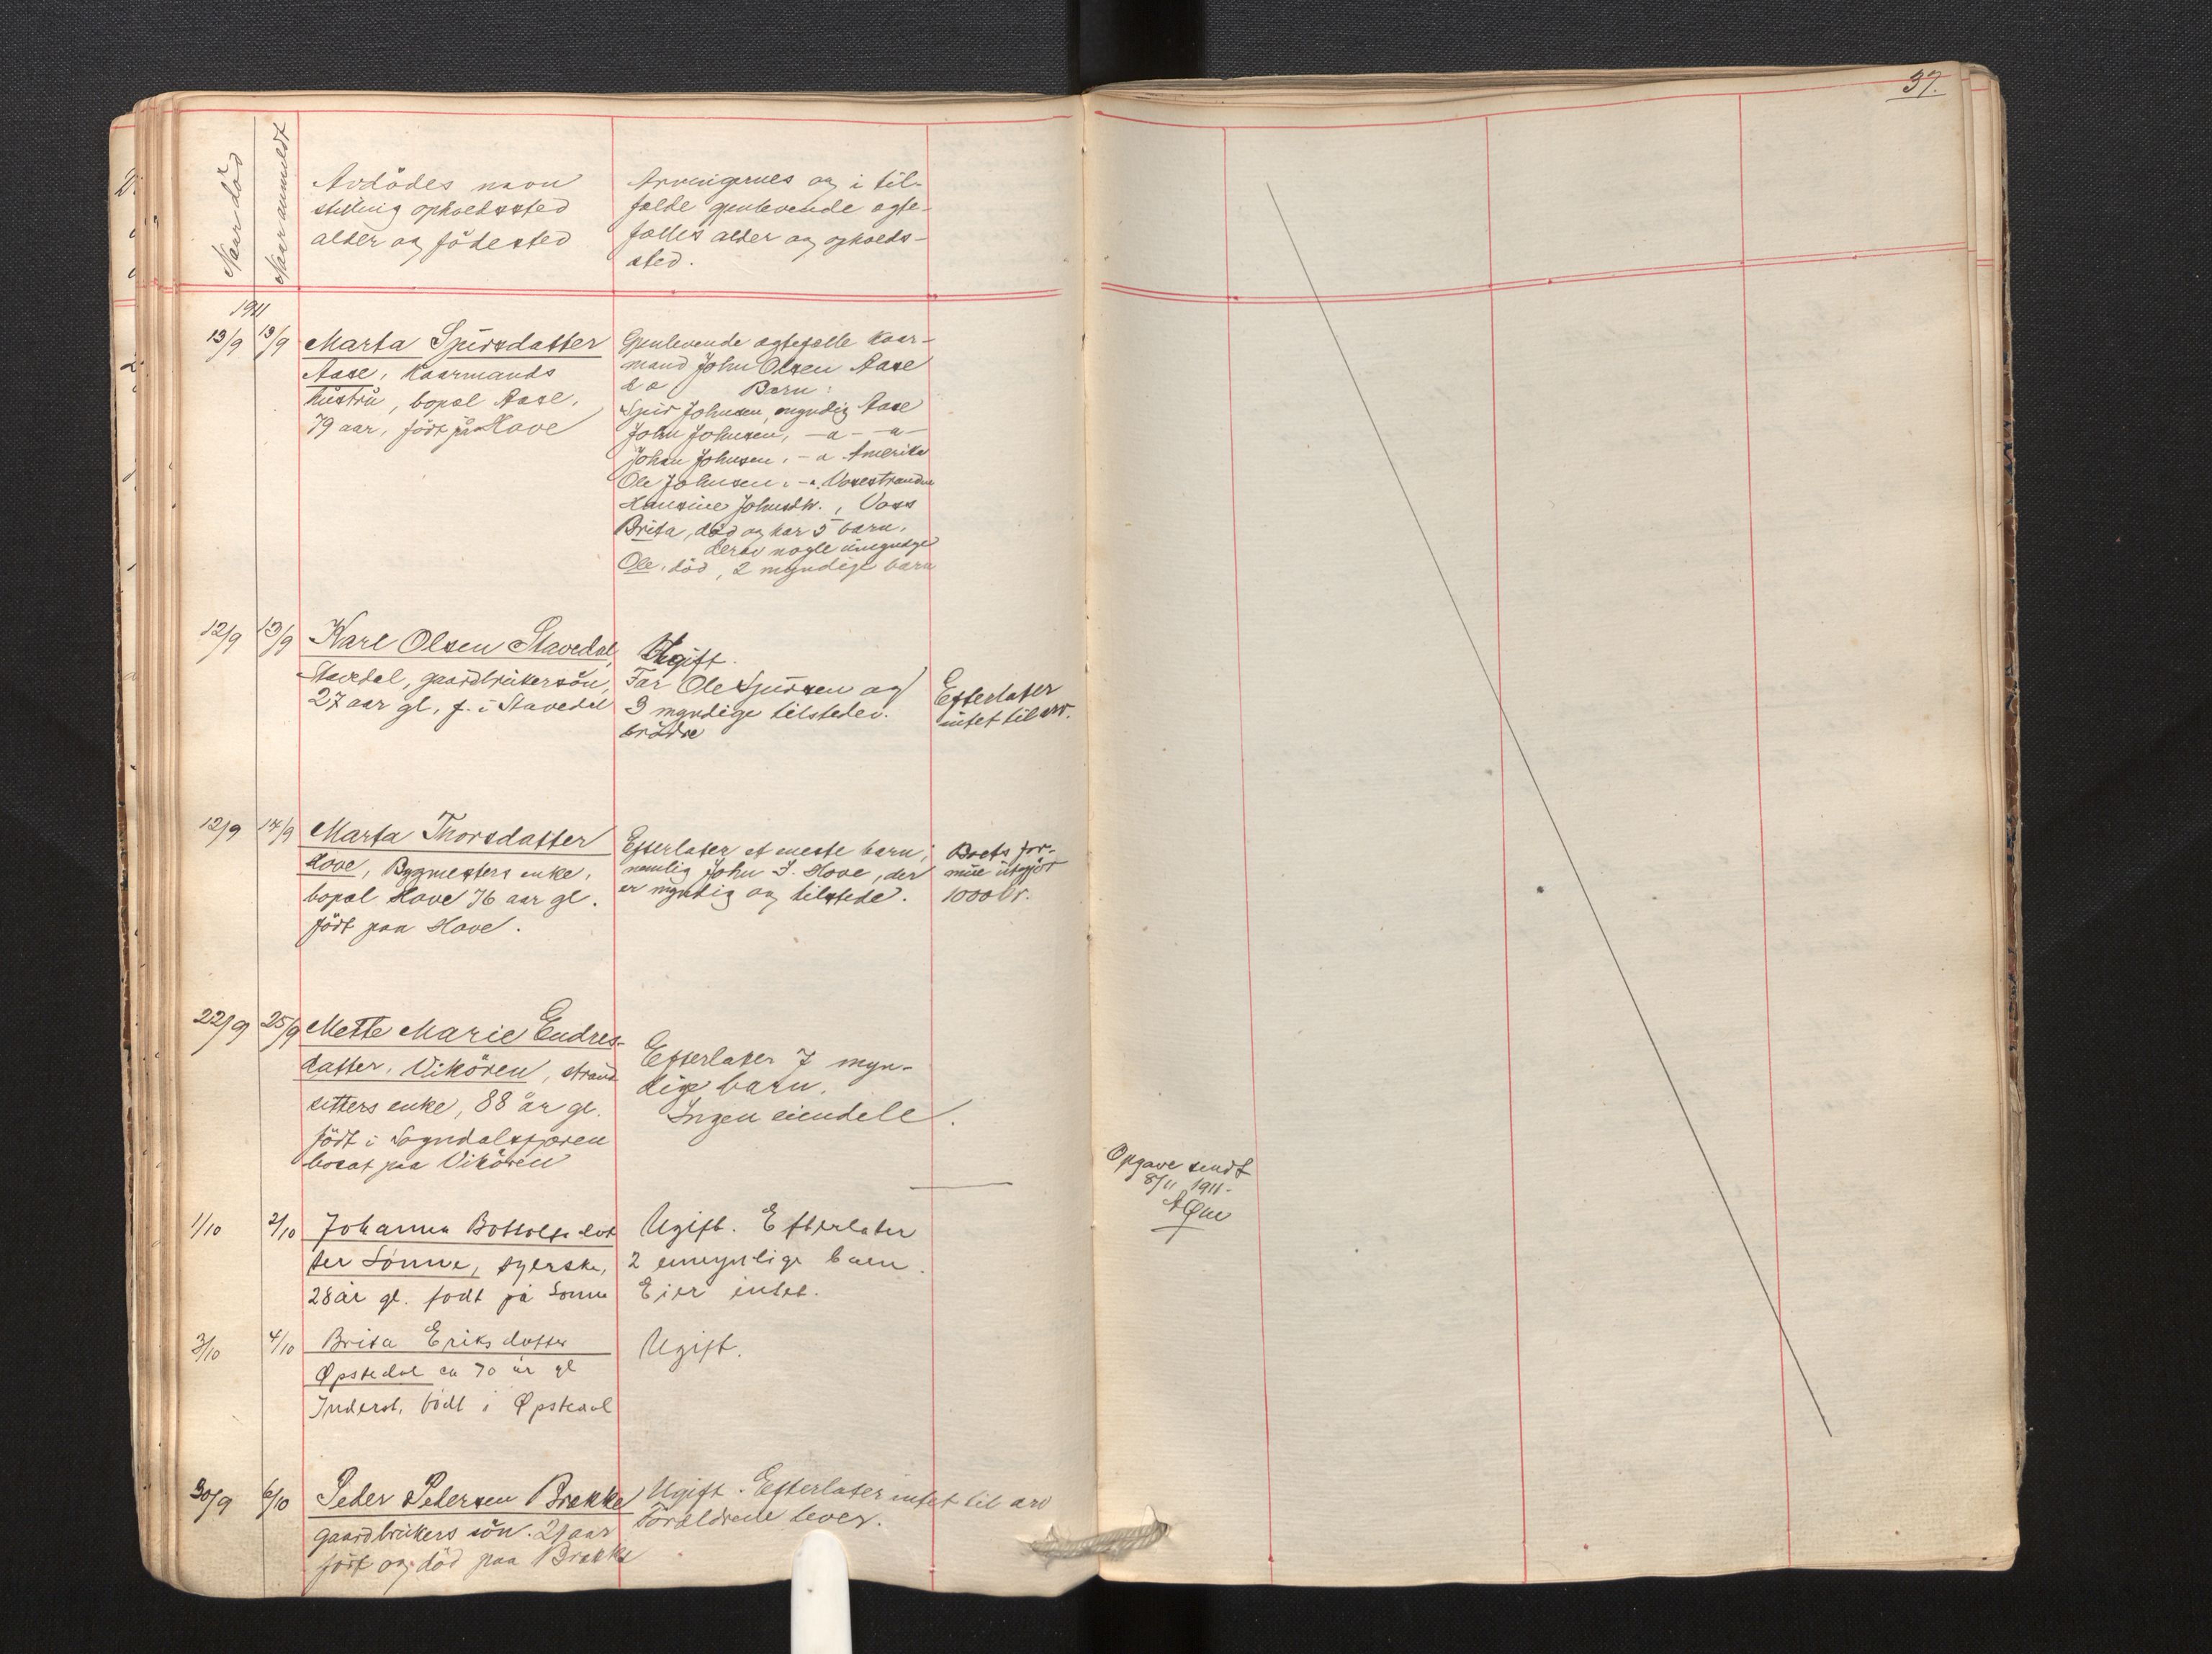 37.
Naar död
Naar anmeldt
Avdödes navn
stilling opholdssted
alder og födested
Arvingernes og i til-
fælde gjenlevende ægte-
fælles alder og opholds-
sted.
1911
13/9 13/9 Marta Spursdatter
Aase, Kaarmands
hustru, bopæl Aase,
79 aar, födt på Hove
Gjenlevende ægtefælle Kaar-
mand John Olsen Aase
Barn:
John Johnsen, -a- -a-
Johan Johnsen, - a Amerika
Ole Johnsen, -a. Vossestranden
Hansine Johnsdtr., Voss
Brita, död og har 5 barn,
derav nogle umyndige
Ole, död, 2 myndige barn
12/9 13/9 Karl Olsen Stavedal,
Stavedal, gaardbrukersön,
27 aar gl, f. i Stavedal
Ugift.
Far Ole Spursen og
3 myndige tilsteder.
brödre
Efterlater
intet til arv.
12/9 14/9 Marta Thorsdatter
Hove, Bygmesters enke,
bopæl Hove 76 aar gl.
födt paa Hove.
Efterlater et eneste barn,
nemlig John J. Hove, der
er myndig og tilstede.
Boets for-
mue utgjör
1000 kr.
22/9 25/9 Mette Marie Endres-
datter, Vikören, strand
sitters enke, 88 år gl.
födt i Sogndalsfjæren
bosat paa Vikören
Efterlater 7 myn-
dige barn.
Ingen eiendele.
Opgave sendt
8/11 1911.
1/10 2/10 Johanna Botholfsdot
ter Sönne, syerske,
28 år gl. födt på Sönne
Ugift. Efterlater
2 umyndige barn.
Eier intet.
3/10 4/10 Brita Eriksdotter
Øpstedal ca 70 år gl
Inderst, födt i Øpstedal
Ugift.
30/9 6/10 Peder Pedersen Brekke
gaardbrukers sön. 21 aar
födt og död paa Brekke
Ugift. Efterlater intet til arv
Forældrene lever.